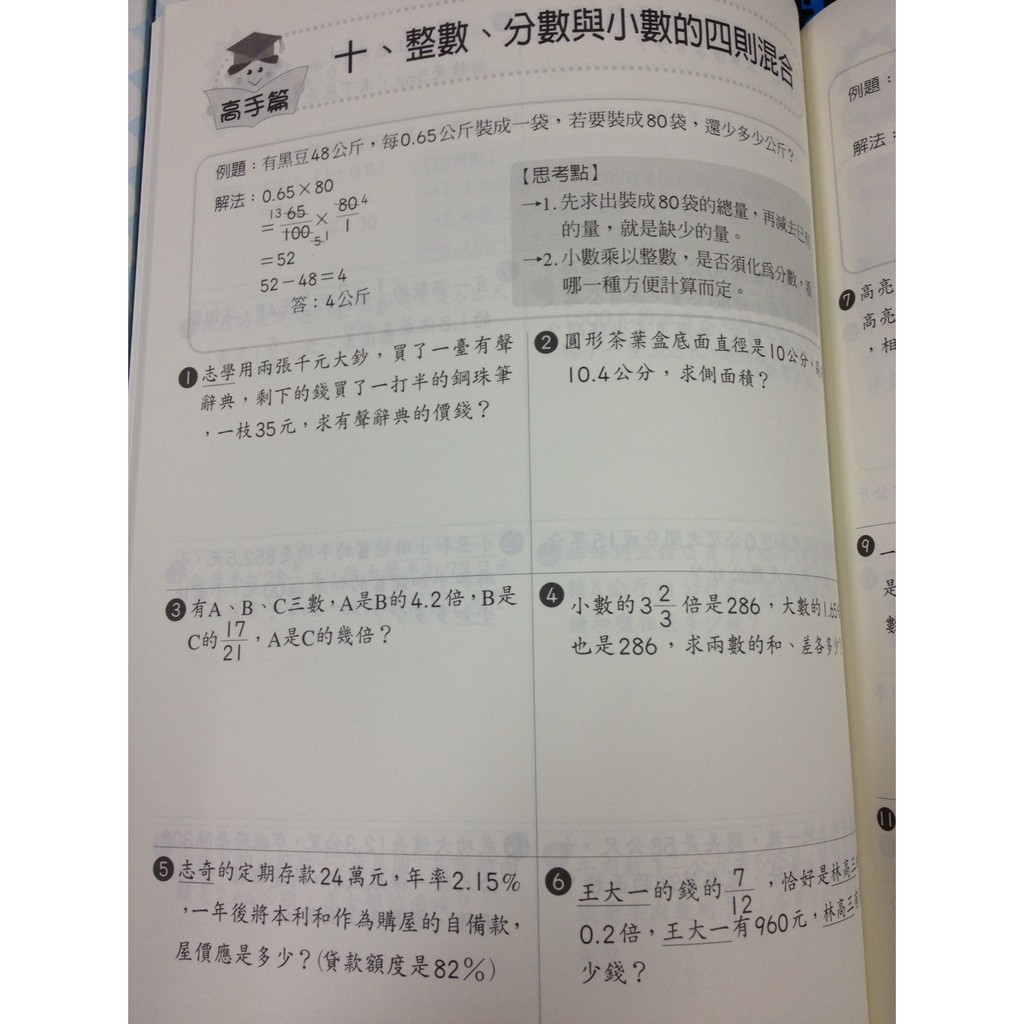 十、整數、分數與小數的四則混合
高手篇
例題：有黑豆48公斤，每0.65公斤裝成一袋，若要裝成80袋，還少多少公斤？
解法：0.65×80
＝13 65/100 5 1 × 80 4/1
＝52
52－48＝4
答：4公斤
【思考點】
→1. 先求出裝成80袋的總量，再減去已有
的量，就是缺少的量。
→2. 小數乘以整數，是否須化為分數，看
哪一種方便計算而定。
❶ 志學用兩張千元大鈔，買了一臺有聲
辭典，剩下的錢買了一打半的鋼珠筆
，一枝35元，求有聲辭典的價錢？
❷ 圓形茶葉盒底面直徑是10公分，高
10.4公分，求側面積？
❸ 有A、B、C三數，A是B的4.2倍，B是
C的17/21，A是C的幾倍？
❹ 小數的3 2/3 倍是286，大數的1.65
也是286，求兩數的和、差各多少
❺ 志奇的定期存款24萬元，年率2.15%
，一年後將本利和作為購屋的自備款，
屋價應是多少？（貸款額度是82%）
❻ 王大一的錢的7/12，恰好是林高三
0.2倍，王大一有960元，林高三有
少錢？
例題：
解法：
❼ 高亮
高亮
，相
❾ 一
是
數
⓫